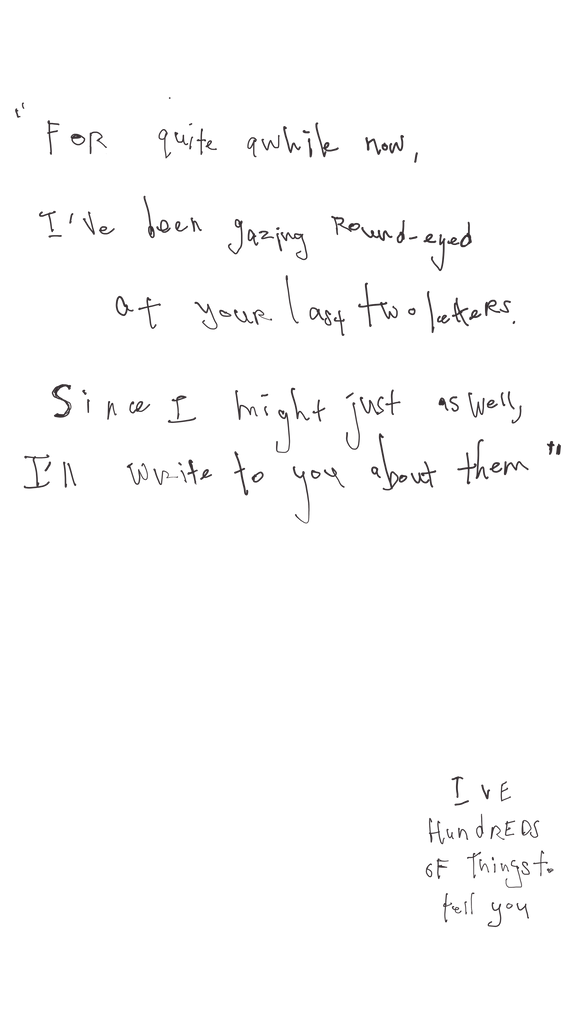 "FOR quite awhile now,
I've been gazing Round-eyed
at your last two letters.
Since I might just as well,
I'll write to you about them"
I VE
HundREDS
OF Things to
tell you